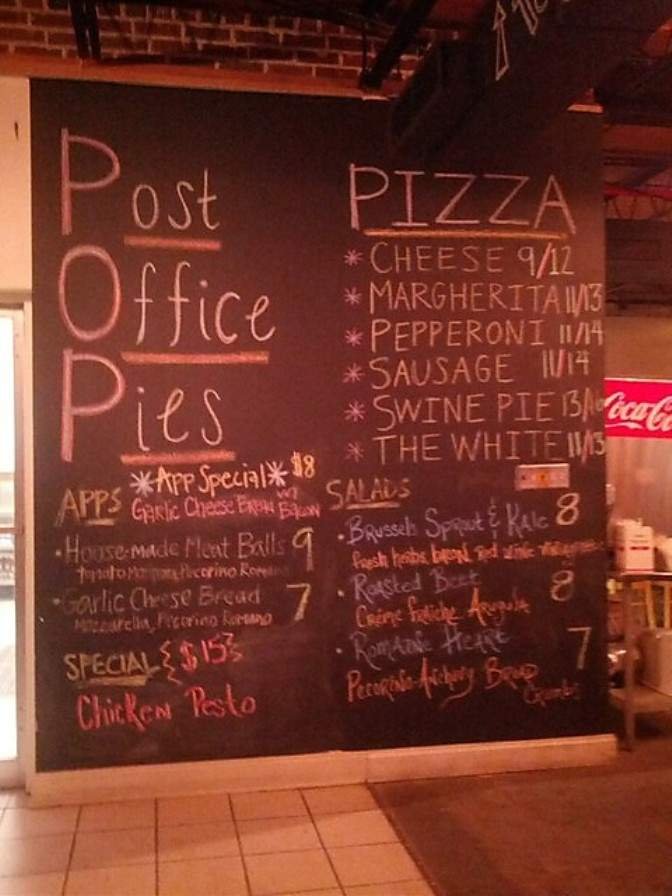 Post
Office
Pies
*App Special* $8
APPS Garlic Cheese Bread w/ Bacon
• House-made Meat Balls 9
Tomato Pecorino Romano
• Garlic Cheese Bread 7
Mozzarella, Pecorino Romano
SPECIAL { $15 }
Chicken Pesto
PIZZA
* CHEESE 9/12
* MARGHERITA 11/13
* PEPPERONI 11/14
* SAUSAGE 11/14
* SWINE PIE 13/
* THE WHITE 11/13
SALADS
• Brussels Sprout & Kale 8
fresh herbs, bread, red wine
• Roasted Beet 8
Crème fraîche Arugula
• Romaine Heart 7
Pecorino-Anchovy Bread
Crumbs
Coca-Co